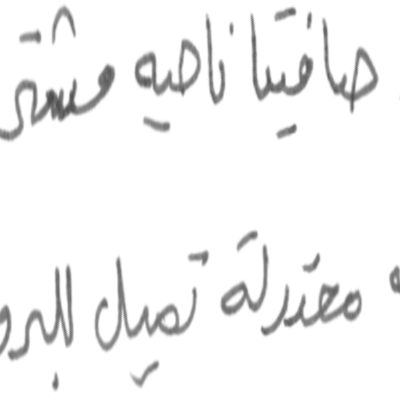 صافيتا ناحيه مشتى
معتدلة تميل للبرو